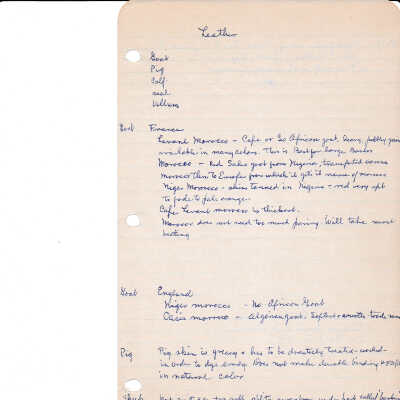 Leather
Goat
Pig
Calf
seal
Vellum
Goat France
Levant Morocco - Cape or So African goat, heavy, pebbly grain
available in many colors. This is Best for large Books
Morocco - Red Sokoto goat from Nigeria, transported across
morocco then to Europe from which it gets its name of morocco
Niger Morocco - skins tanned in Nigeria - red very apt
to fade to pale orange.
Cape Levant morocco is thickest.
Morocco does not need too much paring. Will take most
Goat England
Niger morocco - No. African Goat
Oasis morocco - goat.
Pig Pig skin is greasy & has to be drastically
in order to dye evenly. Does not make durable binding
in natural color